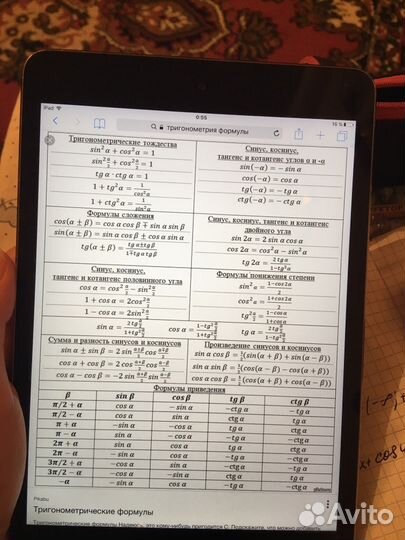 iPad
0:55
16 %
тригонометрия формулы
Тригонометрические тождества
sin²α + cos²α = 1
sin² α/2 + cos² α/2 = 1
tg α · ctg α = 1
1 + tg²α = 1/cos²α
1 + ctg²α = 1/sin²α
Синус, косинус,
тангенс и котангенс углов α и -α
sin(−α) = − sin α
cos(−α) = cos α
tg(−α) = − tg α
ctg(−α) = − ctg α
Формулы сложения
cos(α ± β) = cos α cos β ∓ sin α sin β
sin(α ± β) = sin α cos β ± cos α sin α
tg(α ± β) = tg α ± tg β / 1 ∓ tg α tg β
Синус, косинус, тангенс и котангенс
двойного угла
sin 2α = 2 sin α cos α
cos 2α = cos²α − sin²α
tg 2α = 2 tg α / 1−tg²α
Синус, косинус,
тангенс и котангенс половинного угла
cos α = cos² α/2 − sin² α/2
1 + cos α = 2cos² α/2
1 − cos α = 2sin² α/2
Формулы понижения степени
sin²α = 1−cos2α / 2
cos²α = 1+cos2α / 2
Сумма и разность синусов и косинусов
sin α ± sin β = 2 sin α±β/2 cos α∓β/2
cos α + cos β = 2 cos α+β/2 cos α−β/2
cos α − cos β = −2 sin α+β/2 sin α−β/2
Произведение синусов и косинусов
sin α cos β = ½(sin(α + β) + sin(α − β))
sin α sin β = ½(cos(α − β) − cos(α + β))
cos α cos β = ½(cos(α + β) + cos(α − β))
Формулы приведения
β sin β cos β tg β ctg β
π/2 + α cos α − sin α −ctg α −tg α
π/2 − α cos α sin α ctg α tg α
π + α − sin α − cos α tg α ctg α
π − α sin α − cos α −tg α −ctg α
2π + α sin α cos α tg α ctg α
2π − α − sin α cos α −tg α −ctg α
3π/2 + α − cos α sin α −ctg α −tg α
3π/2 − α − cos α − sin α ctg α tg α
−α − sin α cos α −tg α −ctg α
Pikabu
Тригонометрические формулы
Avito